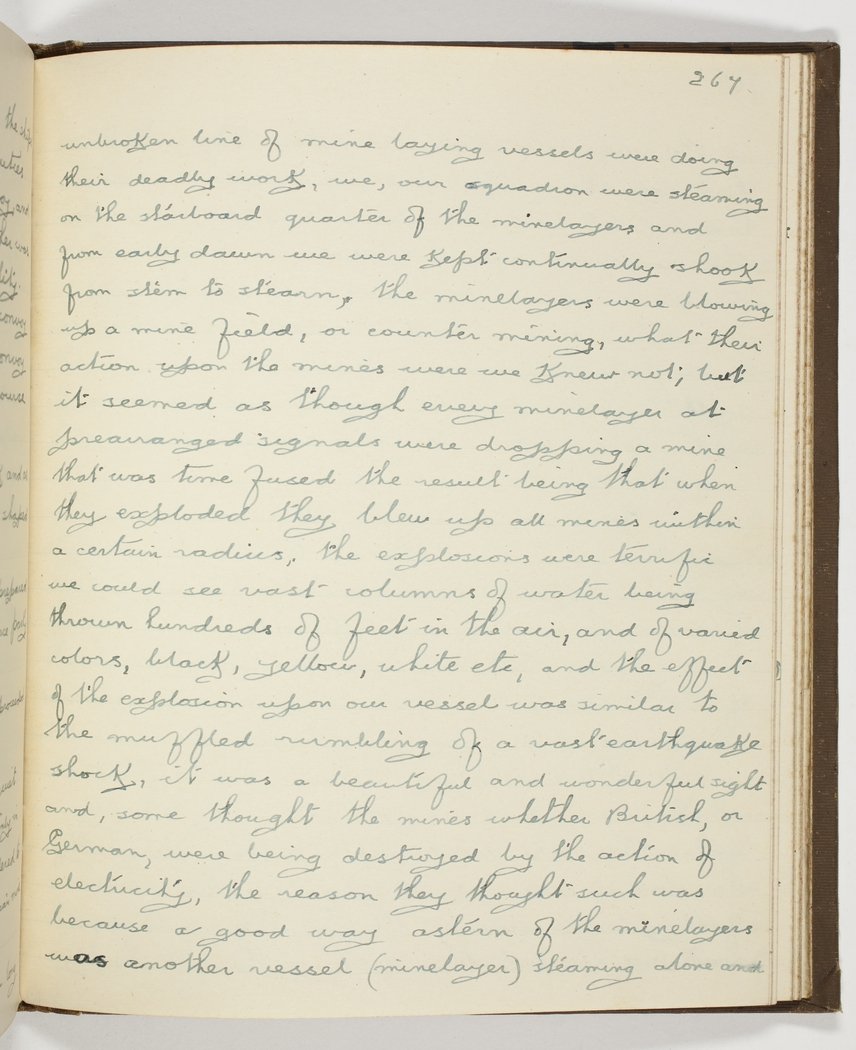 267
unbroken line of mine laying vessels were doing
their deadly work, we, our squadron were steaming
on the starboard quarter of the minelayers and
from early dawn we were kept continually shook
from stem to stearn, the minelayers were blowing
up a mine field, or counter mining, what their
action upon the mines were we knew not; but
it seemed as though every minelayer at
prearranged signals were dropping a mine
that was time fused the result being that when
they exploded they blew up all mines within
a certain radius, the explosions were terrific
we could see vast columns of water being
thrown hundreds of feet in the air, and of varied
colors, black, yellow, white etc, and the effect
of the explosion upon our vessel was similar to
the muffled rumbling of a vast earthquake
shock, it was a beautiful and wonderful sight
and, some thought the mines whether British, or
German, were being destroyed by the action of
electricity, the reason they thought such was
because a good way astern of the minelayers
was another vessel (minelayer) steaming alone and